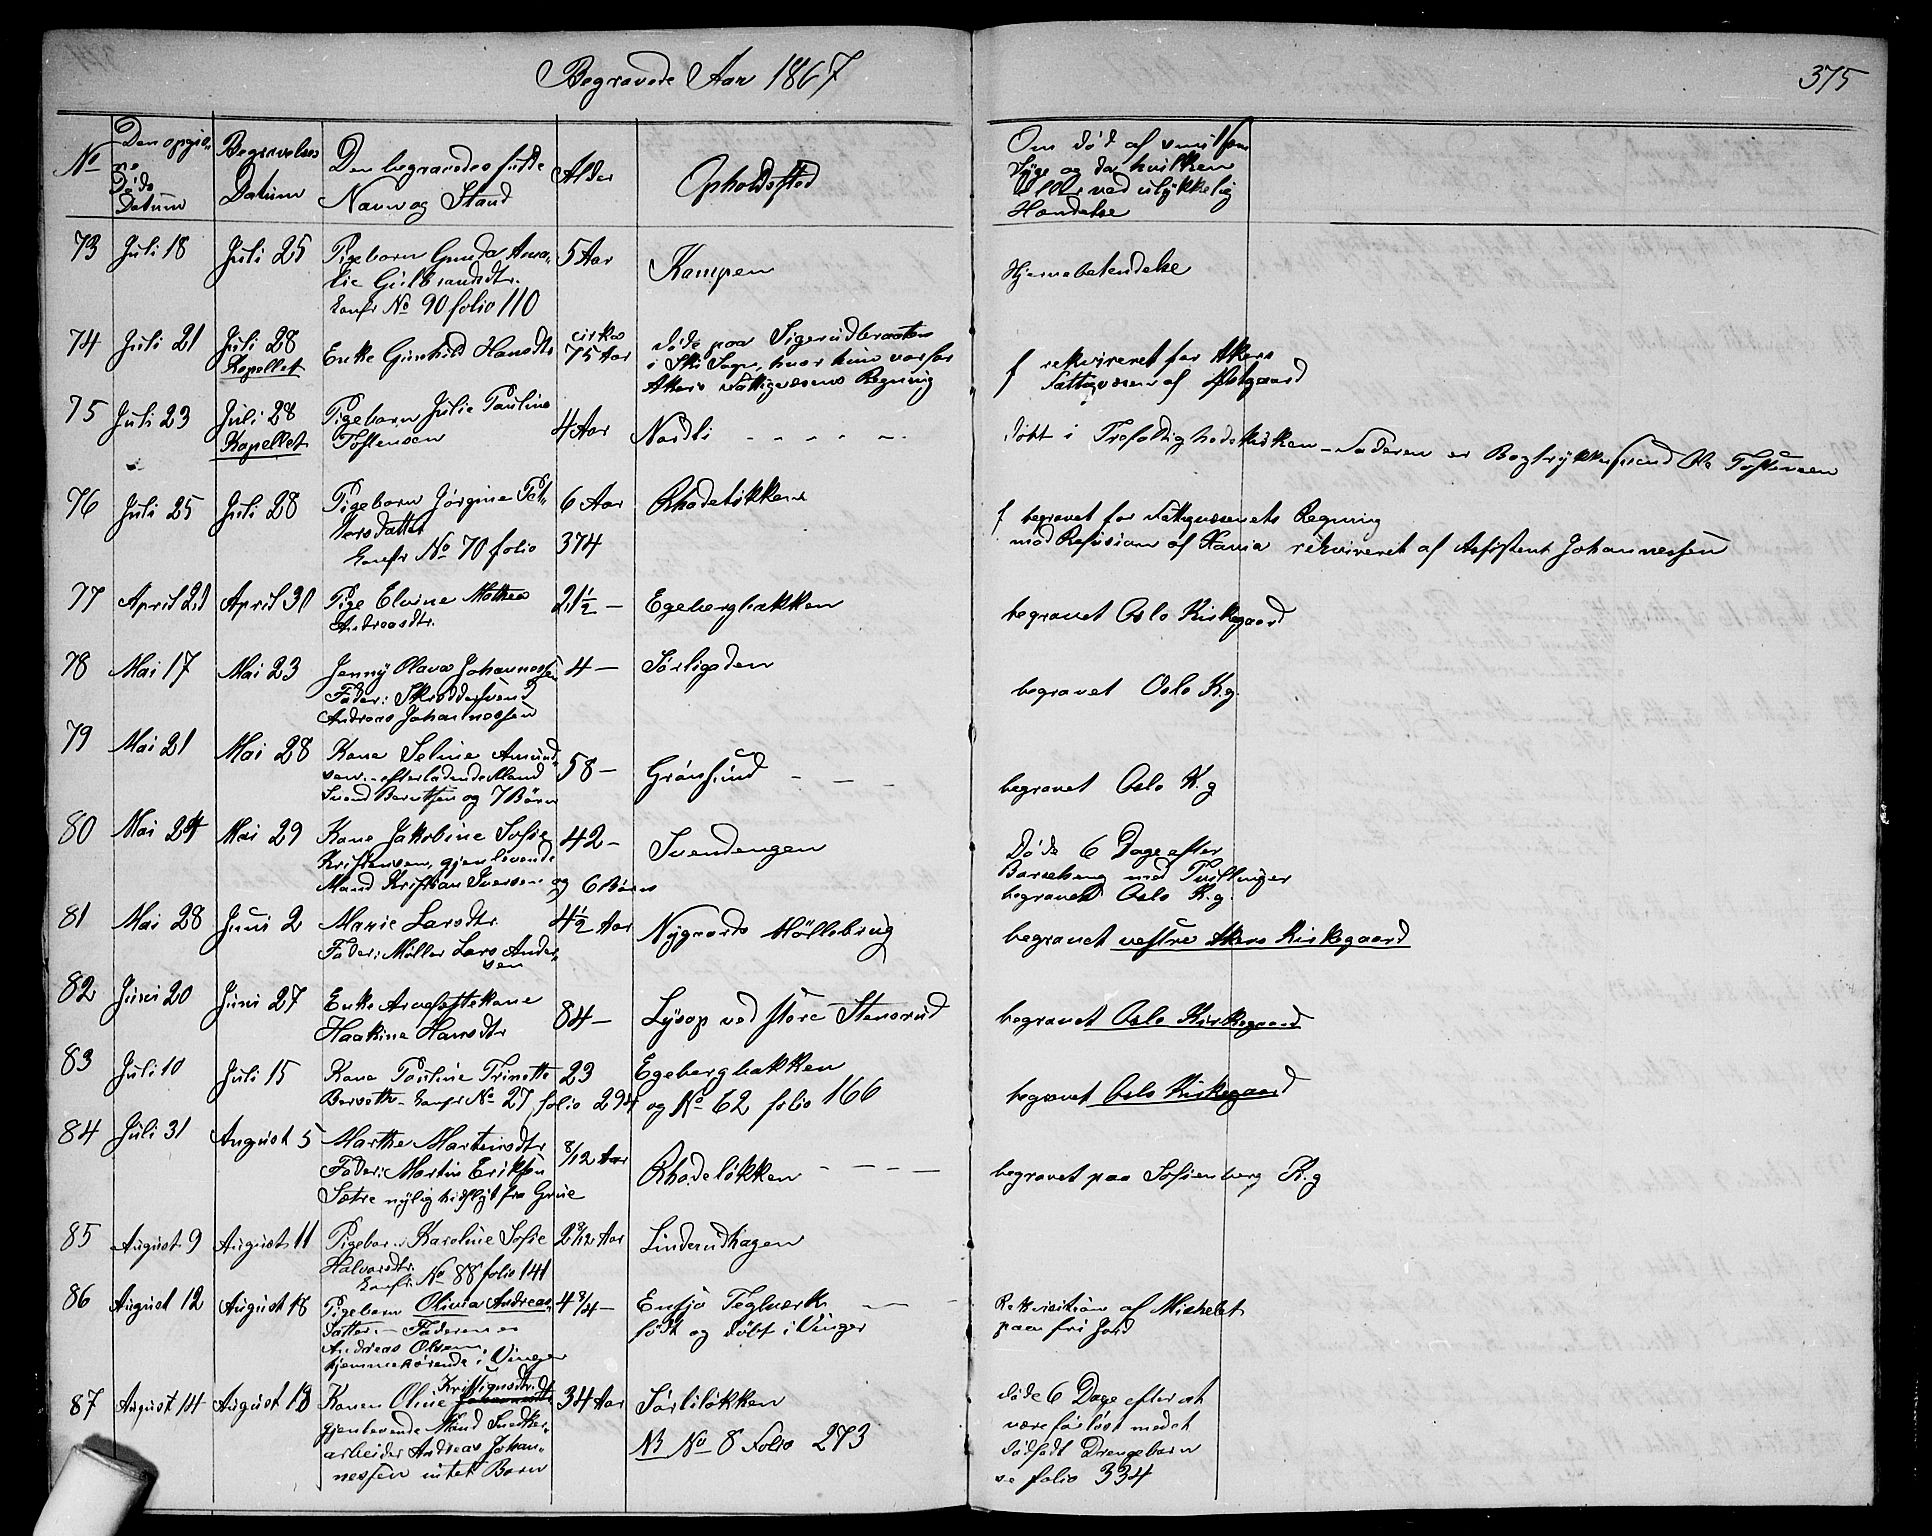 Begravede Aar 1867
375
No
Den opgivne Døds Datum
Begravelses Datum
Den begravedes fulde Navn og Stand
Alder
Opholdssted
Om død af smitsom
Syge og da hvilken
eller ved ulykkelig
Hændelse
73 Juli 18 Juli 25 Pigebarn Gunda Ama- 5 Aar Kampen Hjernebetendelse
lie Gulbrandsdtr.
Confr No 90 folio 110
74 Juli 21 Juli 28 Enke Gunhild Hansdtr cirka 75 Aar døde paa Sigerudbraaten
Kapellet i Ski Sogn, hvor hun var for
Akers Fattigvæsens Regning
f rekvireret for Akers
Fattigvæsen af Østgaard
75 Juli 23 Juli 28 Pigebarn Julie Pauline 4 Aar Nordli - - - - -
Kapellet Tostensen
døbt i Trefoldighedskirken - Faderen er Bogtrykkersvend Ole Tostensen
76 Juli 25 Juli 28 Pigebarn Jørgine Pet- 6 Aar Rhodeløkken
tersdatter
Confr No 70 folio 374
f begravet for Fattigvæsenets Regning
mod Refusion af Xania rekvireret af Assistent Johannessen
77 April 21 April 30 Pige Elvine Mathea 21 1/2 - Egebergbakken begravet Oslo Kirkegaard
Andreasdtr.
78 Mai 17 Mai 23 Jenny Olava Johannessen 4 - Sørligaden begravet Oslo K.g.
Fader: Skreddersvend
Andreas Johannessen
79 Mai 21 Mai 28 Kone Seline Amund- 58 - Grønsund - - begravet Oslo K.g
sen - efterladende Mand
Svend Berntsen og 7 Børn
80 Mai 24 Mai 29 Kone Jakobine Sofie 42 - Svendengen
Kristensen, gjenlevende
Mand Kristian Iversen og 6 Børn
Døde 6 Dage efter
Barselseng med Tvillinger
begravet Oslo K.g.
81 Mai 28 Juni 2 Marie Larsdtr 4 1/2 Aar Nygaards Møllebrug begravet vestre Akers Kirkegaard
Fader: Møller Lars Ander-
sen
82 Juni 20 Juni 27 Enke Arvefestekone 84 - Lysop ved store Stensrud begravet Oslo Kirkegaard
Haakine Hansdtr
83 Juli 10 Juli 15 Kone Pauline Trinette 23 Egebergbakken begravet Oslo Kirkegaard
Berseth - Confr No 27 folio 294 og No 62 folio 166
84 Juli 31 August 5 Marthe Martinsdtr 8/12 Aar Rhodeløkken - - - - begravet paa Sofienberg K.g
Fader: Martin Eriksen
Sætre nylig hidflyt fra Grue
85 August 9 August 11 Pigebarn Karoline Sofie 2 9/12 Aar Linderudhagen
Halvorsdtr.
Confr. No 88 folio 141
86 August 12 August 18 Pigebarn Olivia Andreas- 4 3/4 - Ensjø Teglverk - -
datter - Faderen er født og døbt i Vinger
Andreas Olsen,
hjemmehørende i Vinger
Rekvisition af Michelet
paa fri Jord
87 August 14 August 18 Konen Oline Kristiansdtr. 34 Aar Sørliløkken
gjenlevende Mand Snedker-
arbeider Andreas Johan-
nessen intet Barn
NB No 8 Folio 273
døde 6 Dage efter at
være forløst med et
dødfødt Drengebarn
se folio 334